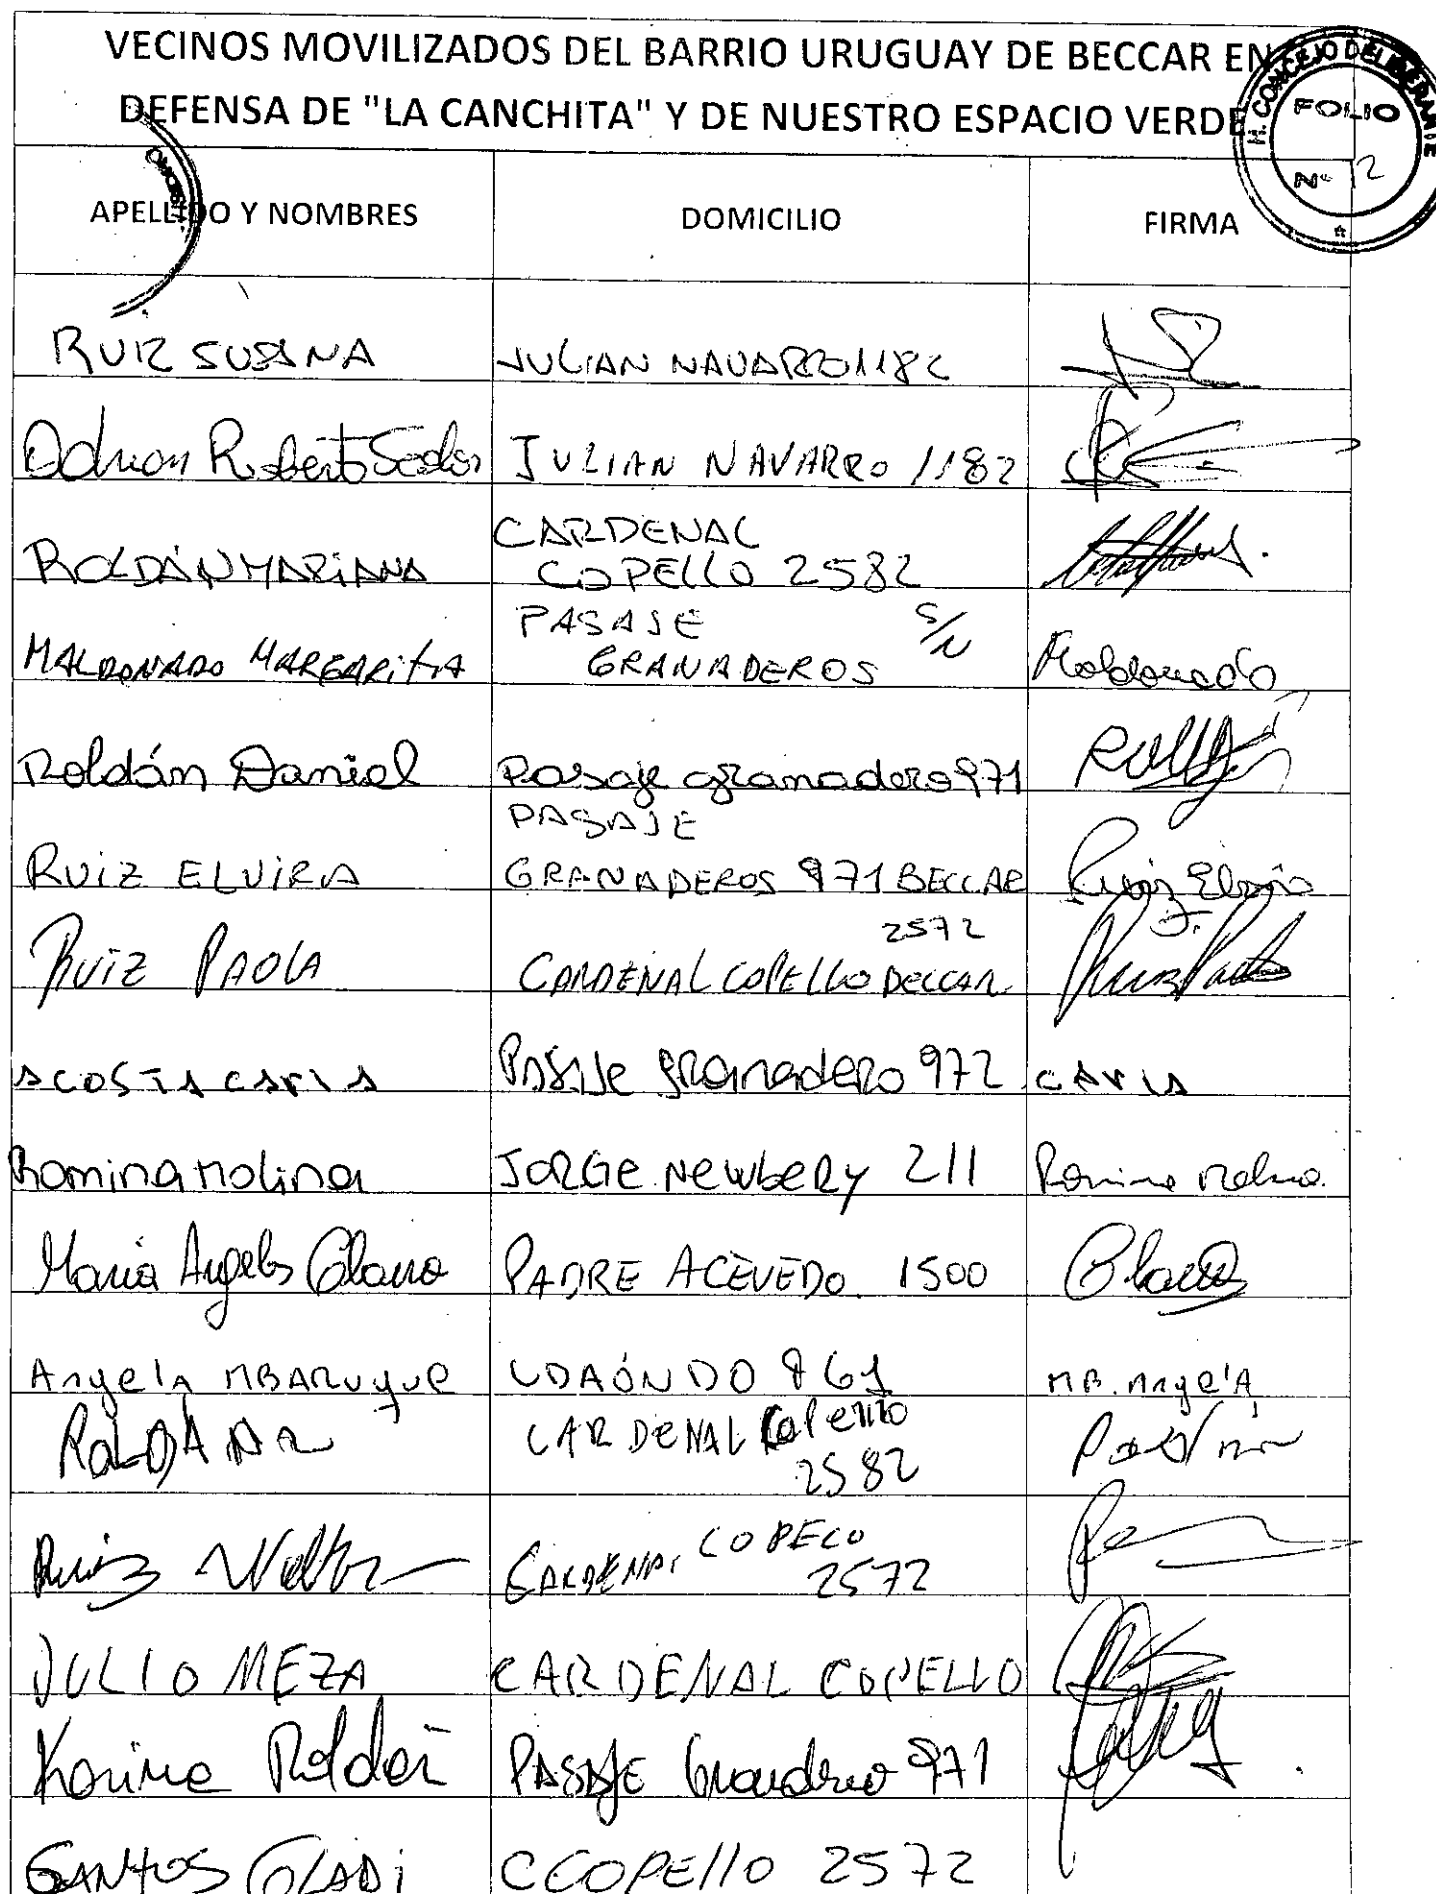 VECINOS MOVILIZADOS DEL BARRIO URUGUAY DE BECCAR EN
DEFENSA DE "LA CANCHITA" Y DE NUESTRO ESPACIO VERDE
H. CONCEJO DELIBERANTE
FOLIO
Nº 12
APELLIDO Y NOMBRES DOMICILIO FIRMA
RUIZ SUSANA JULIAN NAVARRO 1182
Roberto JULIAN NAVARRO 1182
ROLDÁN MARIANA CARDENAL
COPELLO 2582
MALDONADO MARGARITA PASAJE S/N
GRANADEROS Maldonado
Roldán Daniel Pasaje granadero 971
RUIZ ELVIRA PASAJE
GRANADEROS 971 BECCAR Ruiz Elvira
RUIZ PAOLA 2572
CARDENAL COPELLO BECCAR Ruiz Paola
ACOSTA CARLA PASAJE GRanadeRO 972 CARLA
Romina Molina JORGE NewbeRy 211 Romina Molina
Maria Angeles PADRE ACEVEDO 1500
Angela MBARUQUE UDAÓNDO 861 MB. Angela
ROLDAN R CARDENAL Copello
2582
Ruiz CARDENAL COPECO
2572
JULIO MEZA CARDENAL COPELLO
Karina Roldan PASAJE Granadero 971
SANTOS GLADI C COPEllO 2572